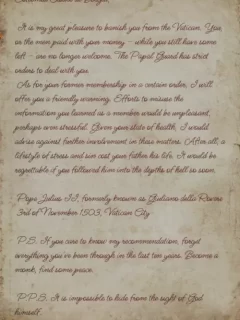 It is my great pleasure to banish you from the Vatican. You,
or the men paid with your money - while you still have some
left - are no longer welcome. The Papal Guard has strict
orders to deal with you.
As for your former membership in a certain order, I will
offer you a friendly warning. Efforts to misuse the
information you learned as a member would be unpleasant,
perhaps even stressful. Given your state of health, I would
advise against further involvement in those matters. After all, a
lifestyle of stress and sin cost your father his life. It would be
regrettable if you followed him into the depths of hell so soon.
Pope Julius II, formerly known as Giuliano della Rovere
3rd of November 1503, Vatican City
P.S. If you care to know my recommendation, forget
everything you've been through in the last ten years. Become a
monk, find some peace.
P.P.S. It is impossible to hide from the sight of God
himself.